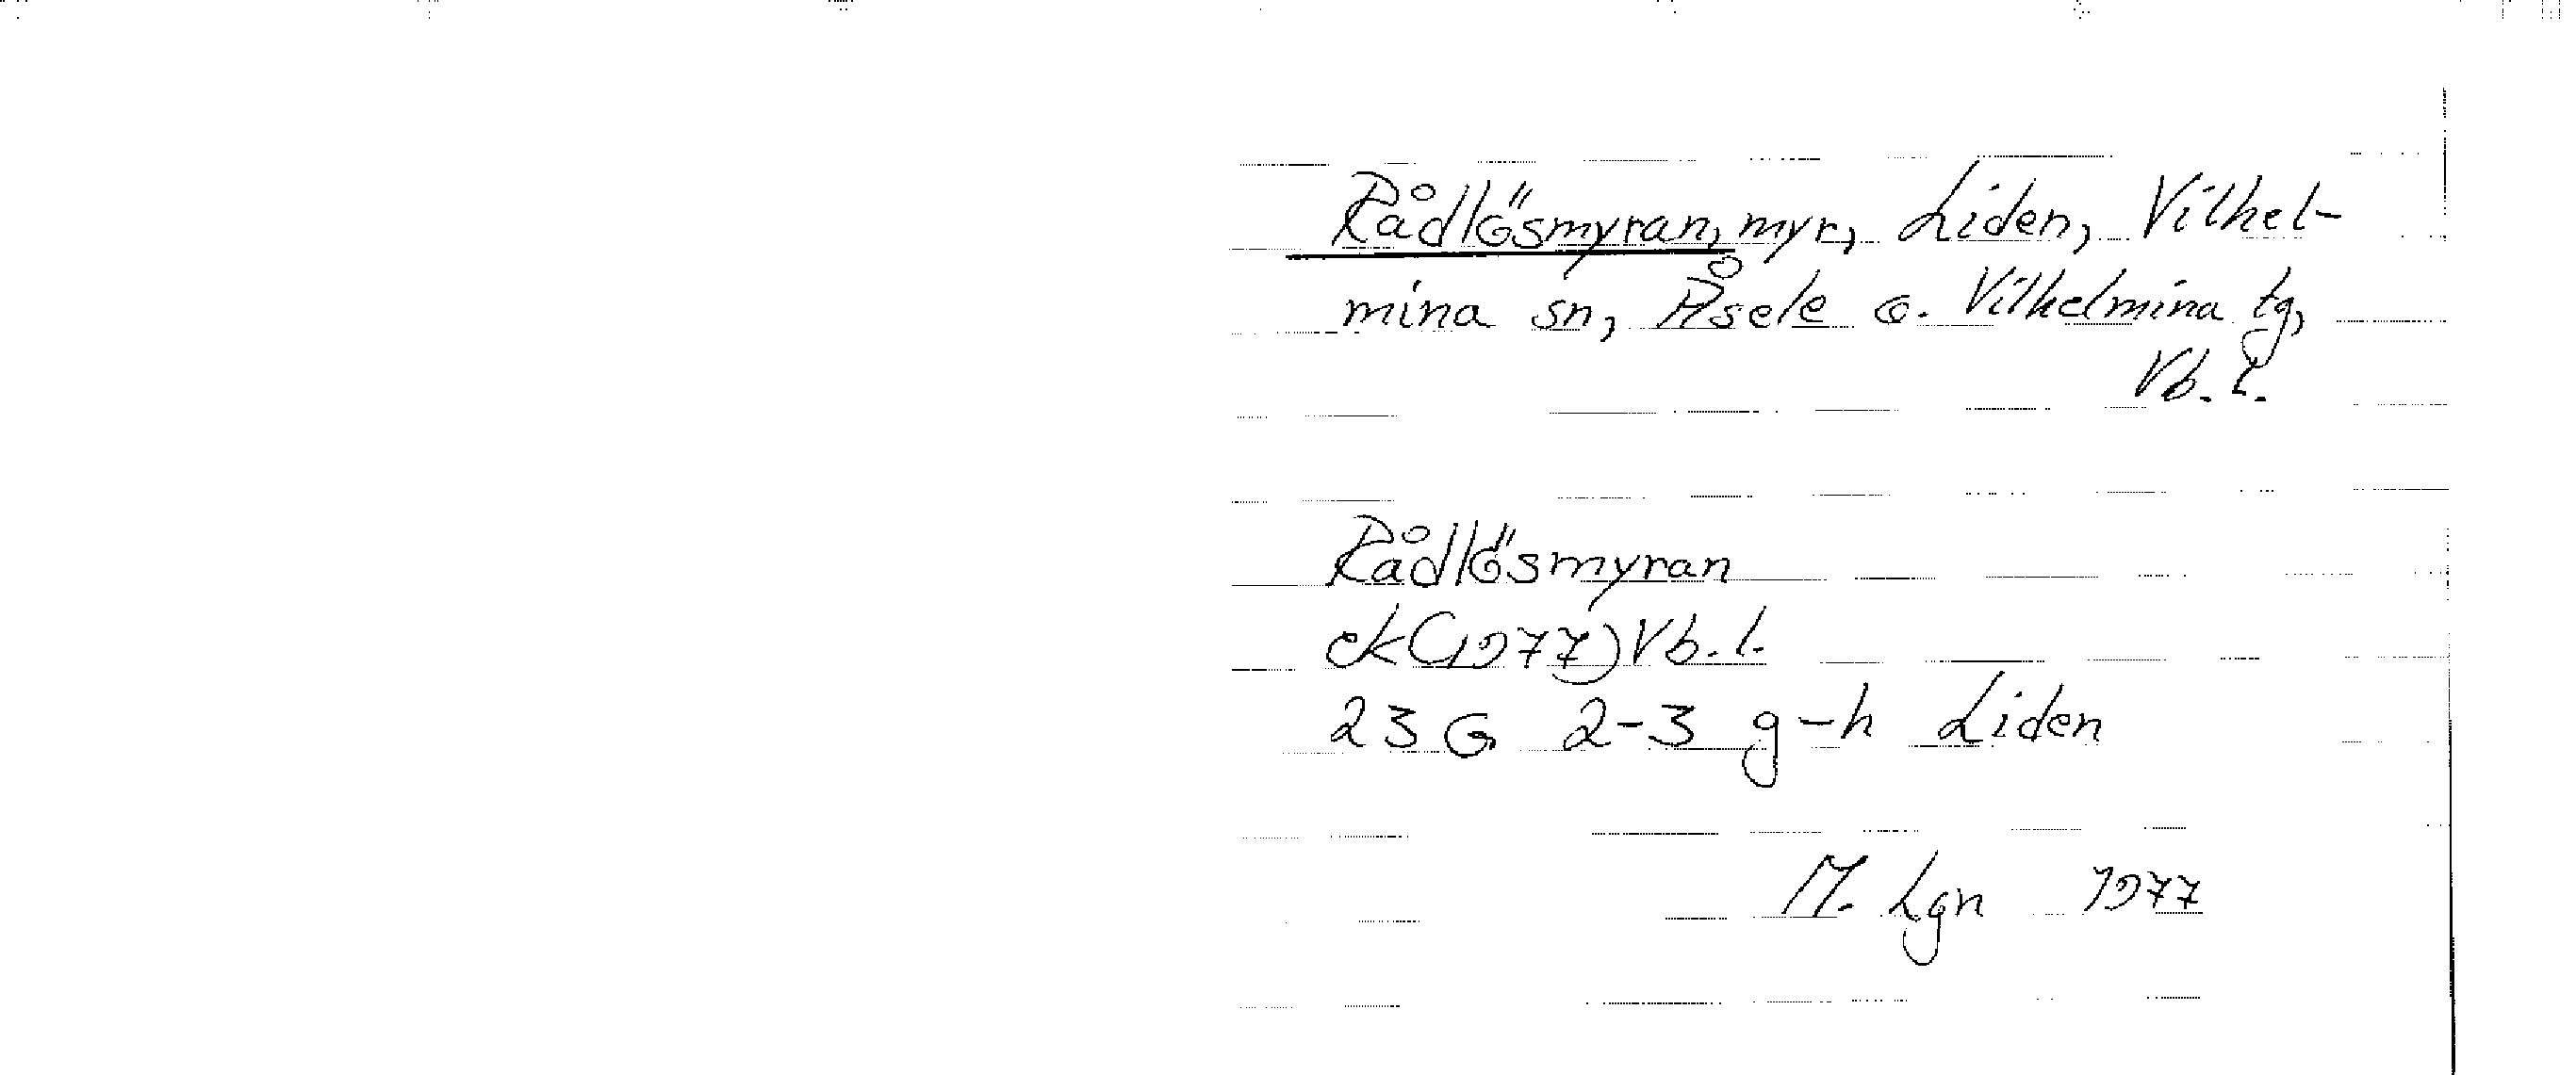 Rådlösmyran, myr, Liden, Vilhel-
mina sn, Åsele o. Vilhelmina tg,
Vb. l.
Rådlösmyran
ek (1977) Vb. l.
23 G 2-3 g-h Liden
M. Lgn 1977